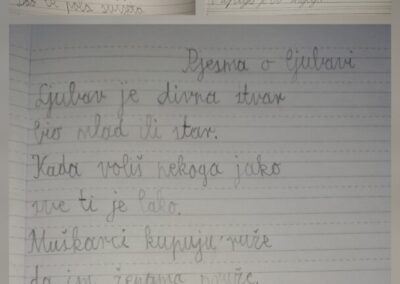 pola svijeta
Pjesma o ljubavi
Ljubav je divna stvar
bio mlad ili star.
Kada voliš nekoga jako
sve ti je lako.
Muškarci kupuju ruže
da im ženama pruže